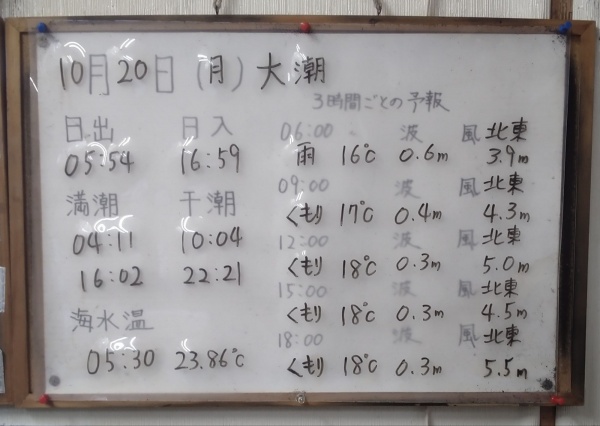 10月20日(月)大潮
3時間ごとの予報
日出 日入
05:54 16:59
満潮 干潮
04:11 10:04
16:02 22:21
海水温
05:30 23.86℃
06:00 波 風 北東
雨 16℃ 0.6m 3.9m
09:00 波 風 北東
くもり 17℃ 0.4m 4.3m
12:00 波 風 北東
くもり 18℃ 0.3m 5.0m
15:00 波 風 北東
くもり 18℃ 0.3m 4.5m
18:00 波 風 北東
くもり 18℃ 0.3m 5.5m